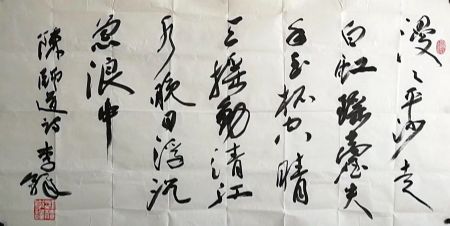 漫々平沙走
白虹瑶臺失
手玉杯空晴
天摇動清江
底晚日浮沉
急浪中
陳師道詩 李